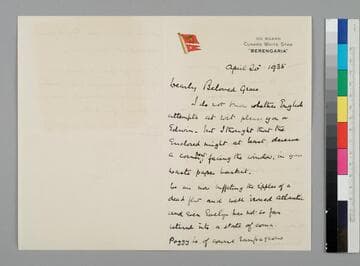 ON BOARD
CUNARD WHITE STAR
"BERENGARIA"
April 20 1935
Dearly Beloved Grace
I do not know whether English
attempts at wit please you or
Edwin. but I thought that the
Enclosed might at least deserve
a corner facing the window, in your
waste paper basket.
We are now the ripples of a
dead flat and well ironed Atlantic
and even Evelyn has not so far
retired into a state of coma.
Peggy is of course